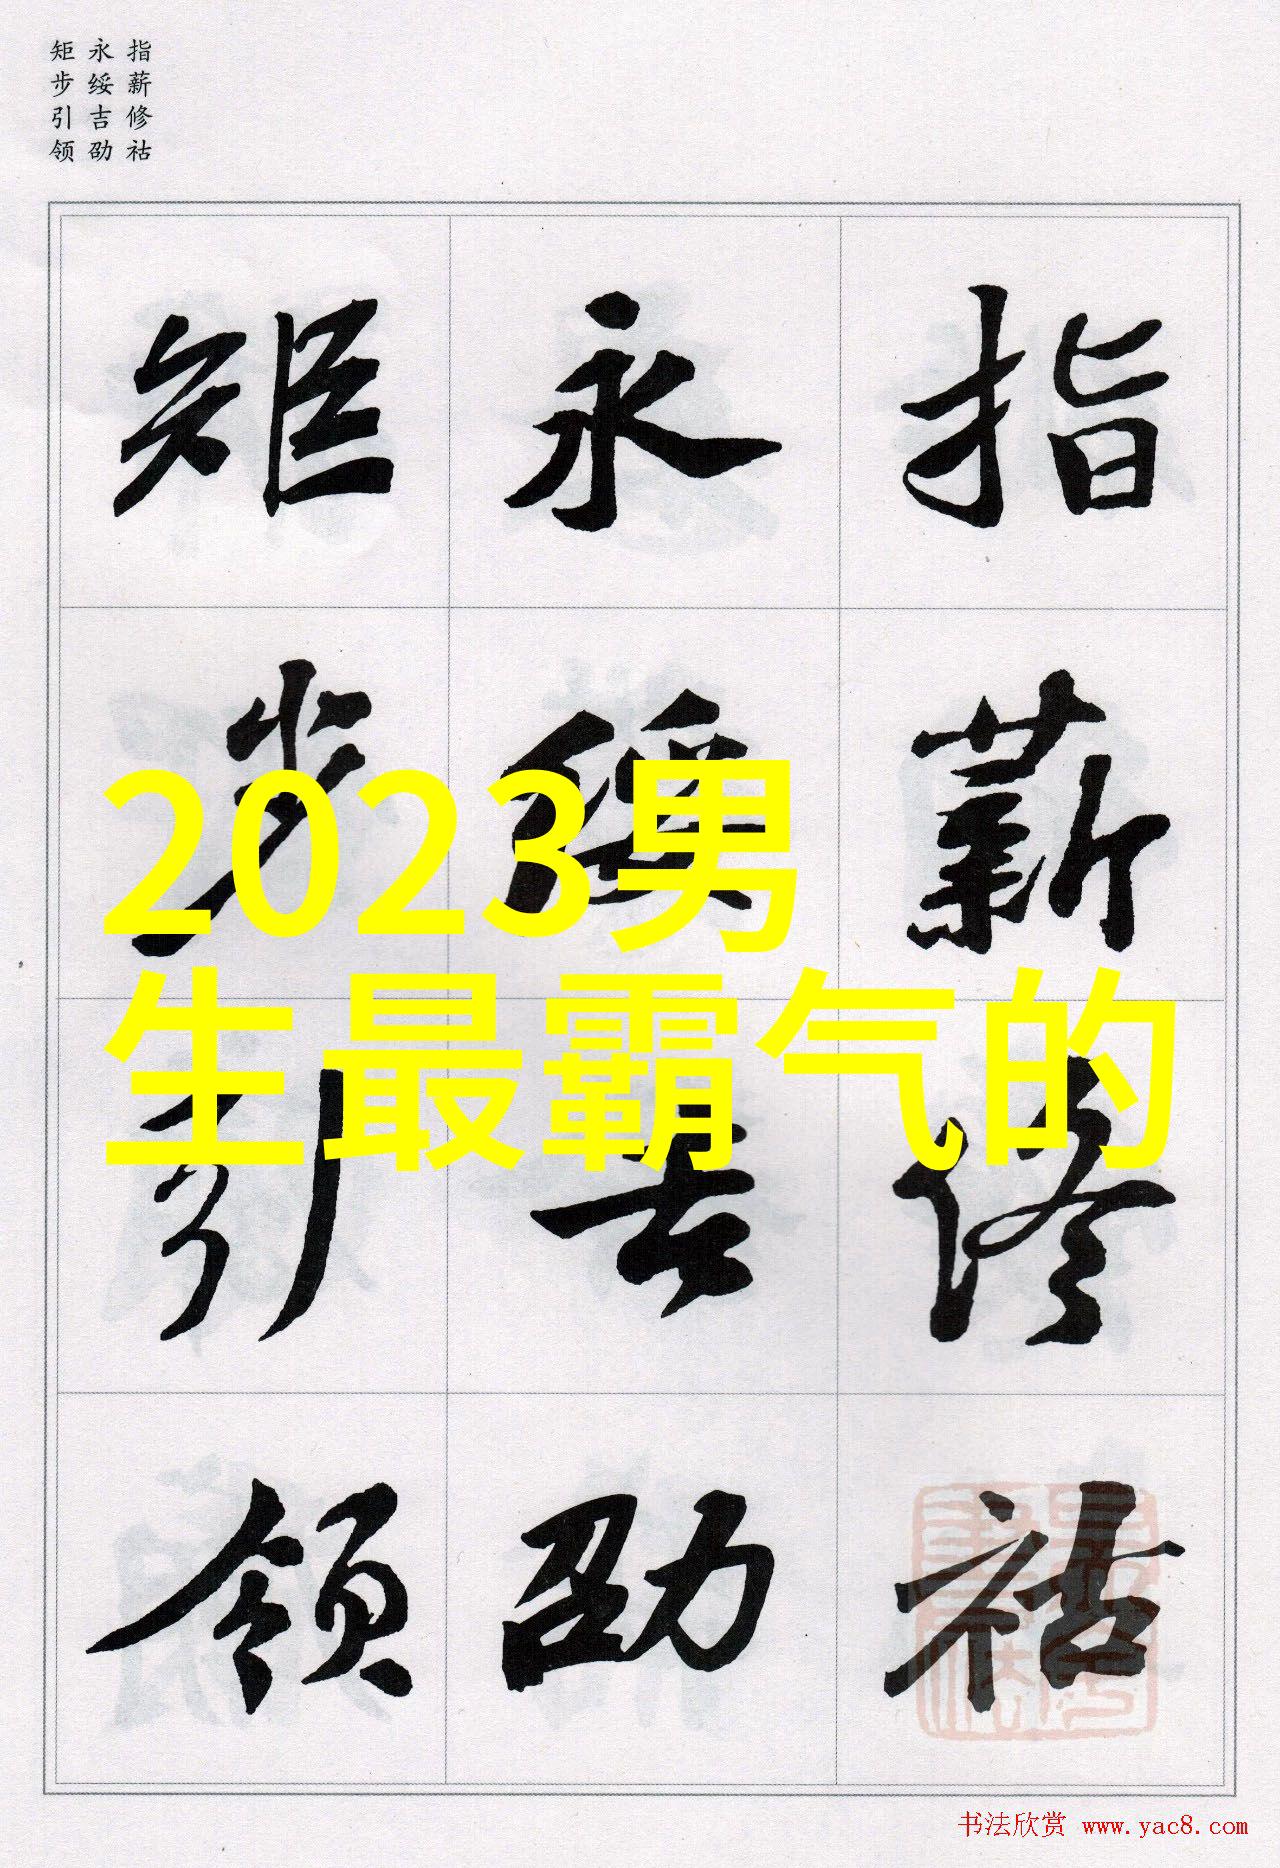 指薪修祜
永绥吉劭
矩步引领
指薪修祜
永绥吉劭
矩步引领
2023男
生最霸气的
书法欣赏 www.yac8.com